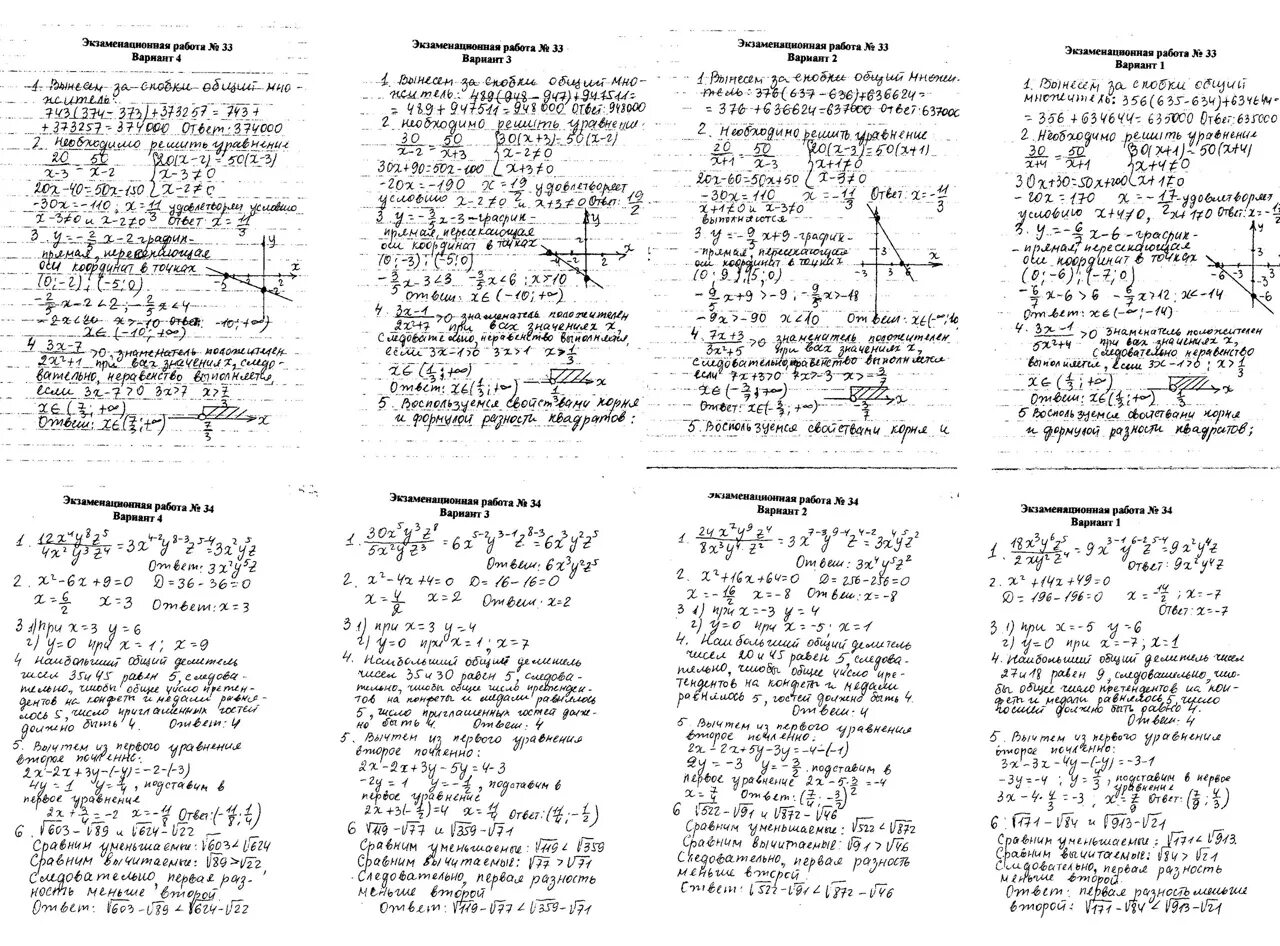 Экзаменационная работа № 33
Вариант 4
1. Вынесем за скобки общий мно-
житель:
743(374-373)+373257=743+
+373257=374000 Ответ:374000
2. Необходимо решить уравнение
20/(x-3) = 50/(x-2) {20(x-2)=50(x-3)
x-3≠0
20x-40=50x-150 x-2≠0
-30x=-110, x=11/3 удовлетворяет условию
x-3≠0 и x-2≠0 Ответ: x=11/3
3 y=-2/5x-2-график-
прямая, пересекающая
оси координат в точках
(0;-2); (-5;0)
-2/5x-2<2; -2/5x<4
x>-10 Ответ: -10;+∞)
x∈(-10;+∞)
4 (3x-7)/(2x²+1)>0 знаменатель положителен
при всех значениях x, следо-
вательно, неравенство выполняется,
если 3x-7>0 3x>7 x>7/3
x∈(7/3;+∞)
Ответ: x∈(7/3;+∞)
Экзаменационная работа № 33
Вариант 3
1 Вынесем за скобки общий мно-
житель: 489(948-947)+947511=
=489+947511=948000 Ответ:948000
2. необходимо решить уравнение
30/(x-2) = 50/(x+3) {30(x+3)=50(x-2)
x-2≠0
x+3≠0
30x+90=50x-100
-20x=-190 x=19/2 удовлетворяет
условию x-2≠0 и x+3≠0 Ответ 19/2
3 y=-3/5x-3-график-
прямая, пересекающая
оси координат в точках
(0;-3); (-5;0)
-3/5x-3<3 -3/5x<6; x>-10
Ответ: x∈(-10;+∞)
4. (3x-1)/(2x²+7)>0 знаменатель положителен
при всех значениях x,
Следовательно, неравенство выполняется,
если 3x-1>0 3x>1 x>1/3
x∈(1/3;+∞)
Ответ: x∈(1/3;+∞)
5 Воспользуемся свойствами корня
и формулой разности квадратов:
Экзаменационная работа № 33
Вариант 2
1 Вынесем за скобки общий множи-
тель: 376(637-636)+636624=
=376+636624=637000 Ответ:637000
2. Необходимо решить уравнение
20/(x+1) = 50/(x-3) {20(x-3)=50(x+1)
x+1≠0
x-3≠0
20x-60=50x+50
-30x=110 x=-11/3 Ответ x=-11/3
x+1≠0 и x-3≠0
выполняется
3 y=-9/5x+9-график-
прямая, пересекающая
оси координат в точках
(0;9); (5;0)
-9/5x+9>-9; -9/5x>-18
-9x>-90 x<10 Ответ: x∈(-∞;10
4. (7x+3)/(3x²+5)>0 знаменатель положителен
при всех значениях x,
следовательно неравенство выполняется
если 7x+3>0 7x>-3 x>-3/7
x∈(-3/7;+∞)
Ответ: x∈(-3/7;+∞)
5. Воспользуемся свойствами корня и
Экзаменационная работа № 33
Вариант 1
1. Вынесем за скобки общий
множитель: 356(635-634)+634644=
=356+634644=635000 Ответ:635000
2. Необходимо решить уравнение
30/(x+4) = 50/(x+1) {30(x+1)=50(x+4)
x+4≠0
30x+30=50x+200 x+1≠0
-20x=170 x=-17/2 удовлетворяет
условию x+4≠0, x+1≠0 Ответ: x=-17/2
3. y=-6/7x-6-график-
-прямая, пересекающая
оси координат в точках
(0;-6); (-7;0)
-6/7x-6>6 -6/7x>12; x<-14
Ответ: x∈(-∞;-14)
4. (3x-1)/(5x²+4)>0 знаменатель положителен
при всех значениях x,
Следовательно неравенство
выполняется, если 3x-1>0; x>1/3
x∈(1/3;+∞)
Ответ: x∈(1/3;+∞)
5 Воспользуемся свойствами корня
и формулой разности квадратов;
Экзаменационная работа № 34
Вариант 4
1. 12x⁴y⁸z⁵/4x²y³z⁴=3x⁴⁻²y⁸⁻³z⁵⁻⁴=3x²y⁵z
Ответ:3x²y⁵z
2. x²-6x+9=0 D=36-36=0
x=6/2 x=3 Ответ: x=3
3 1) при x=3 y=6
2) y=0 при x=1; x=9
4 Наибольший общий делитель
чисел 35 и 45 равен 5, следова-
тельно, чтобы общее число претен-
дентов на конфеты и медали равня-
лось 5, число приглашенных гостей
должно быть 4. Ответ: 4
5. Вычтем из первого уравнения
второе почленно:
2x-2x+3y-(-y)=-2-(-3)
4y=1 y=1/4, подставим в
первое уравнение
2x+3/4=-2 x=-11/8 Ответ:(-11/8;1/4)
6. √603-√89 и √624-√22
Сравним уменьшаемые: √603<√624
Сравним вычитаемые: √89>√22
Следовательно, первая раз-
ность меньше второй.
Ответ: √603-√89<√624-√22
Экзаменационная работа № 34
Вариант 3
1. 30x⁵y³z⁸/5x²yz³=6x⁵⁻²y³⁻¹z⁸⁻³=6x³y²z⁵
Ответ: 6x³y²z⁵
2. x²-4x+4=0 D=16-16=0
x=4/2 x=2 Ответ: x=2
3 1) при x=3 y=4
2) y=0 при x=1; x=7
4. Наибольший общий делитель
чисел 35 и 30 равен 5, следова-
тельно, чтобы общее число претенден-
тов на конфеты и медали равнялось
5, число приглашенных гостей долж-
но быть 4. Ответ: 4
5. Вычтем из первого уравнения
второе почленно:
2x-2x+3y-5y=4-3
-2y=1 y=-1/2, подставим в
первое уравнение
2x+3(-1/2)=4 x=11/4 Ответ:(11/4;-1/2)
6 √119-√77 и √359-√71
Сравним уменьшаемые: √119<√359
Сравним вычитаемые: √77>√71
Следовательно, первая разность
меньше второй
Ответ: √119-√77<√359-√71
Экзаменационная работа № 34
Вариант 2
1. 24x⁷y⁹z⁴/8x³y⁴z²=3x⁷⁻³y⁹⁻⁴z⁴⁻²=3x⁴y⁵z²
Ответ: 3x⁴y⁵z²
2. x²+16x+64=0 D=256-256=0
x=-16/2 x=-8 Ответ: x=-8
3 1) при x=-3 y=4
2) y=0 при x=-5; x=1
4. Наибольший общий делитель
чисел 20 и 45 равен 5, следова-
тельно, чтобы общее число пре-
тендентов на конфеты и медали
равнялось 5, гостей должно быть 4.
Ответ: 4
5. Вычтем из первого уравнения
второе почленно:
2x-2x+5y-3y=-4-(-1)
2y=-3 y=-3/2 подставим в
первое уравнение 2x-5·3/2=-4
x=7/4 Ответ: (7/4;-3/2)
6 √522-√91 и √872-√46
Сравним уменьшаемые: √522<√872
Сравним вычитаемые: √91>√46
Следовательно, первая разность
меньше второй
Ответ: √522-√91<√872-√46
Экзаменационная работа № 34
Вариант 1
1. 18x³y⁶z⁵/2xy²z⁴=9x³⁻¹y⁶⁻²z⁵⁻⁴=9x²y⁴z
Ответ: 9x²y⁴z
2. x²+14x+49=0
D=196-196=0 x=-14/2; x=-7
Ответ: x=-7
3 1) при x=-5 y=6
2) y=0 при x=-7; x=1
4 Наибольший общий делитель чисел
27 и 18 равен 9, следовательно, что-
бы общее число претендентов на кон-
феты и медали равнялось 5, число
гостей должно быть равно 4.
Ответ: 4
5. Вычтем из первого уравнения
второе почленно:
3x-3x-4y-(-y)=-3-1
-3y=-4; y=4/3, подставим в первое
уравнение
3x-4·4/3=-3, x=7/9 Ответ: (7/9;4/3)
6 √171-√84 и √913-√21
Сравним уменьшаемые: √171<√913
Сравним вычитаемые: √84>√21
Следовательно, первая разность
меньше второй.
Ответ: первая разность меньше
второй: √171-√84<√913-√21